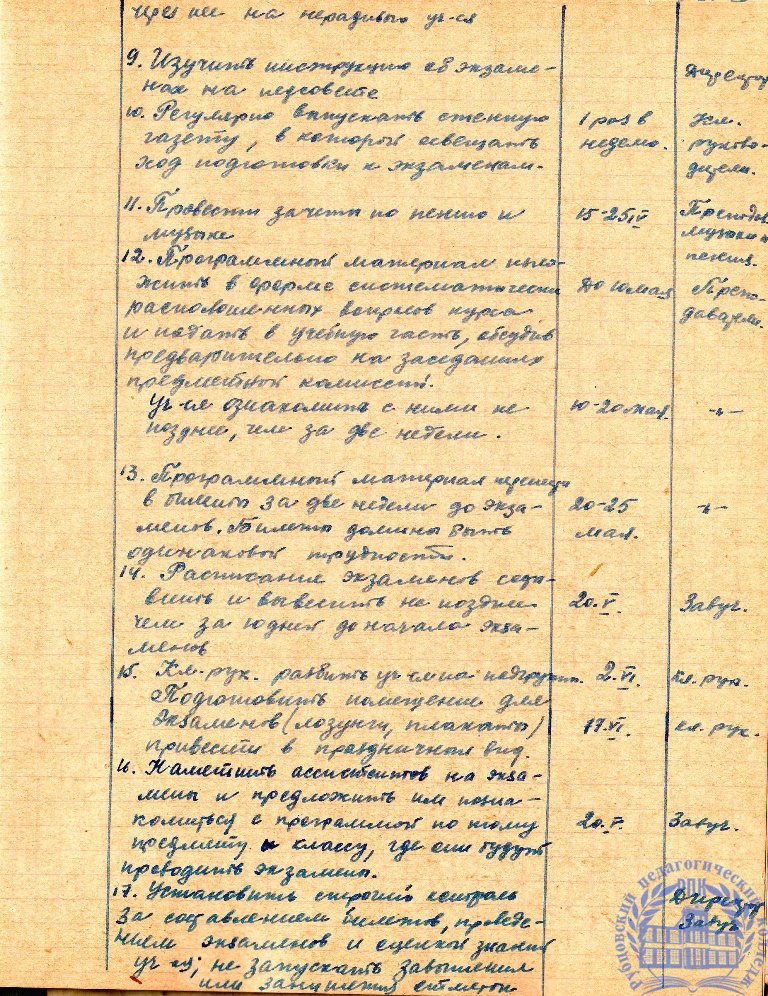 через нее на нерадивых уч-ся
9. Изучить инструкцию об экзаме-
нах на педсовете
Директор
10. Регулярно выпускать стенную
газету, в которой освещать
ход подготовки к экзаменам.
1 раз в
неделю.
Кл.
руково-
дители.
11. Провести зачеты по пению и
музыке
15-25 IV
Преподав.
музыки и
пения.
12. Программный материал изло-
жить в форме систематически
расположенных вопросов курса
и подать в учебную часть, обсудив
предварительно на заседаниях
предметной комиссии.
До 10 мая
Препо-
даватели.
Уч-ся ознакомить с ними не
позднее, чем за две недели.
10-20 мая.
-"-
13. Программный материал перенести
в билеты за две недели до экза-
менов. Билеты должны быть
одинаковой трудности.
20-25
мая.
-"-
14. Расписание экзаменов соста-
вить и вывесить не позднее
чем за 10 дней до начала экза-
менов
20.V.
Завуч.
15. Кл. рук. разбить уч-ся на подгруппы.
2.VI.
кл. рук.
Подготовить помещение для
экзаменов (лозунги, плакаты)
привести в праздничный вид.
17.VI.
кл. рук.
16. Наметить ассистентов на экза-
мены и предложить им позна-
комиться с программой по тому
предмету и классу, где они будут
проводить экзамены.
20.V.
Завуч.
17. Установить строгий контроль
за составлением билетов, проведе-
нием экзаменов и оценкой знаний
уч-ся; не допускать завышения
или занижения отметок
Директ
Завуч
Рубцовский педагогический колледж
РПК